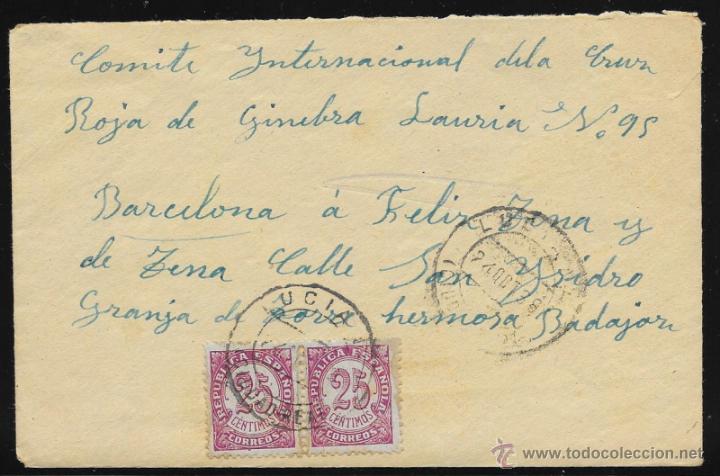 Comite Ynternacional dela Cruz
Roja de Ginebra Lauria Nº 95
Barcelona á Feliz Zena y
de Zena Calle San Ysidro
Granja de Torre hermosa Badajoz
LUCIA
CIUDAD REAL
REPUBLICA ESPAÑOLA
25
CENTIMOS
CORREOS
REPUBLICA ESPAÑOLA
25
CENTIMOS
CORREOS
todocoleccion.net